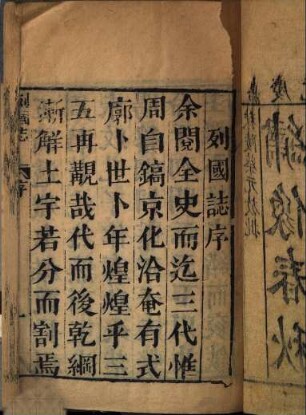 列國誌序
余閱全史而迄三代惟
周自鎬京化洽奄有式
廓卜世卜年煌煌乎三
五再覯哉代而後乾綱
漸解土宇若分而割焉
列國志
序
一
繡像春秋